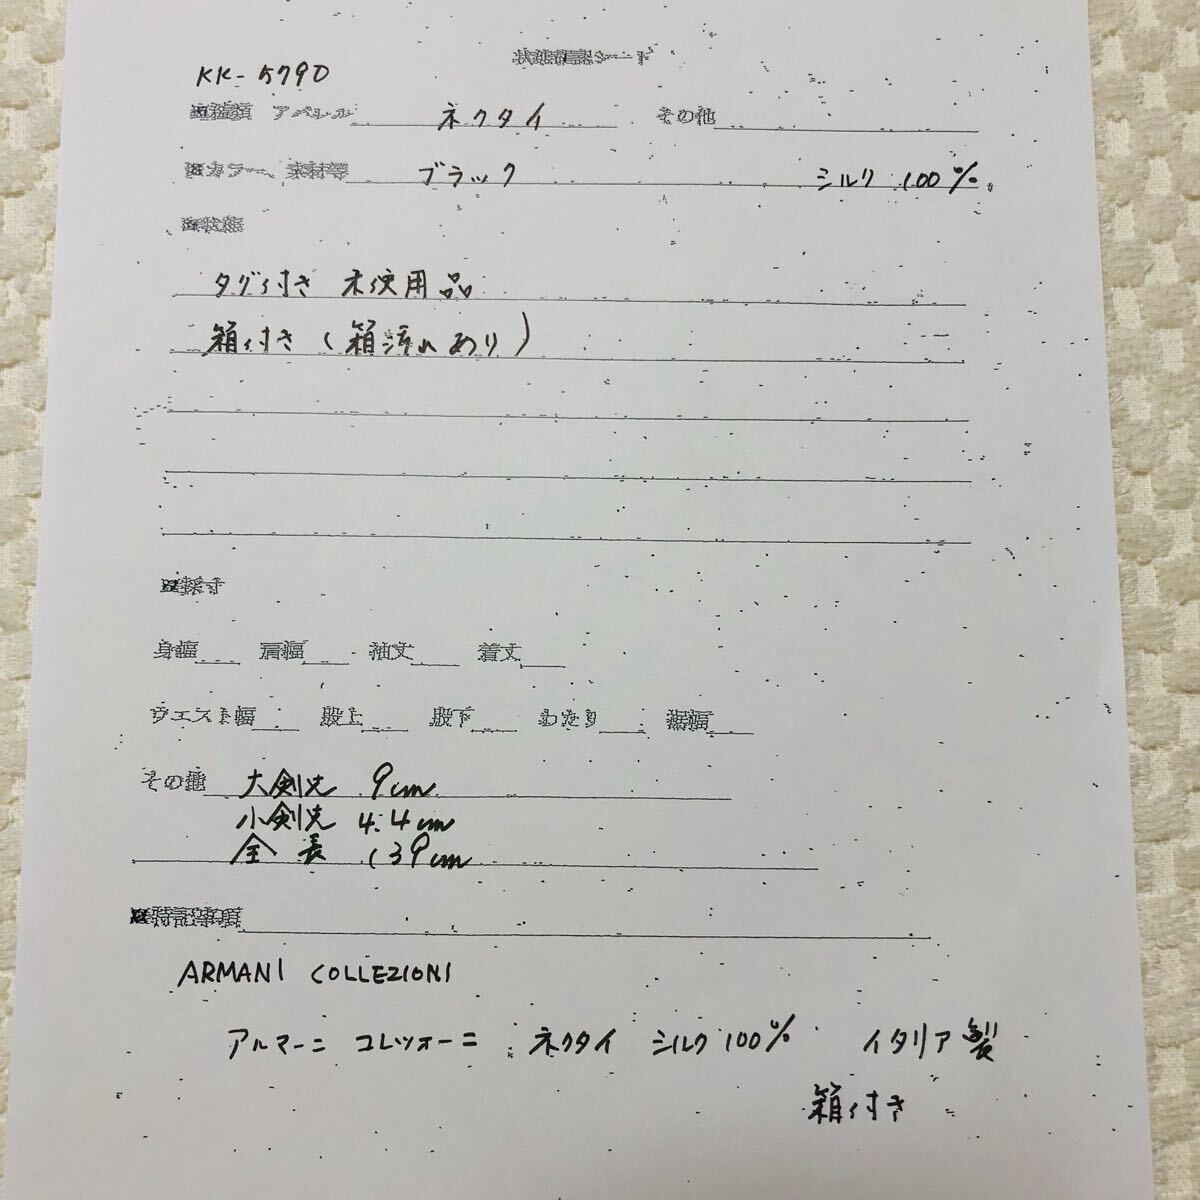 状態確認シート
KK-5790
■種類 アパレル ネクタイ その他
■カラー、素材等 ブラック シルク 100%
■状態
タグ付き 未使用品
箱付き (箱汚れあり)
■採寸
身幅 肩幅 袖丈 着丈
ウエスト幅 股上 股下 わたり 裾幅
その他 大剣先 9cm
小剣先 4.4cm
全長 139cm
■特記事項
ARMANI COLLEZIONI
アルマーニ コレツォーニ ネクタイ シルク100% イタリア製
箱付き